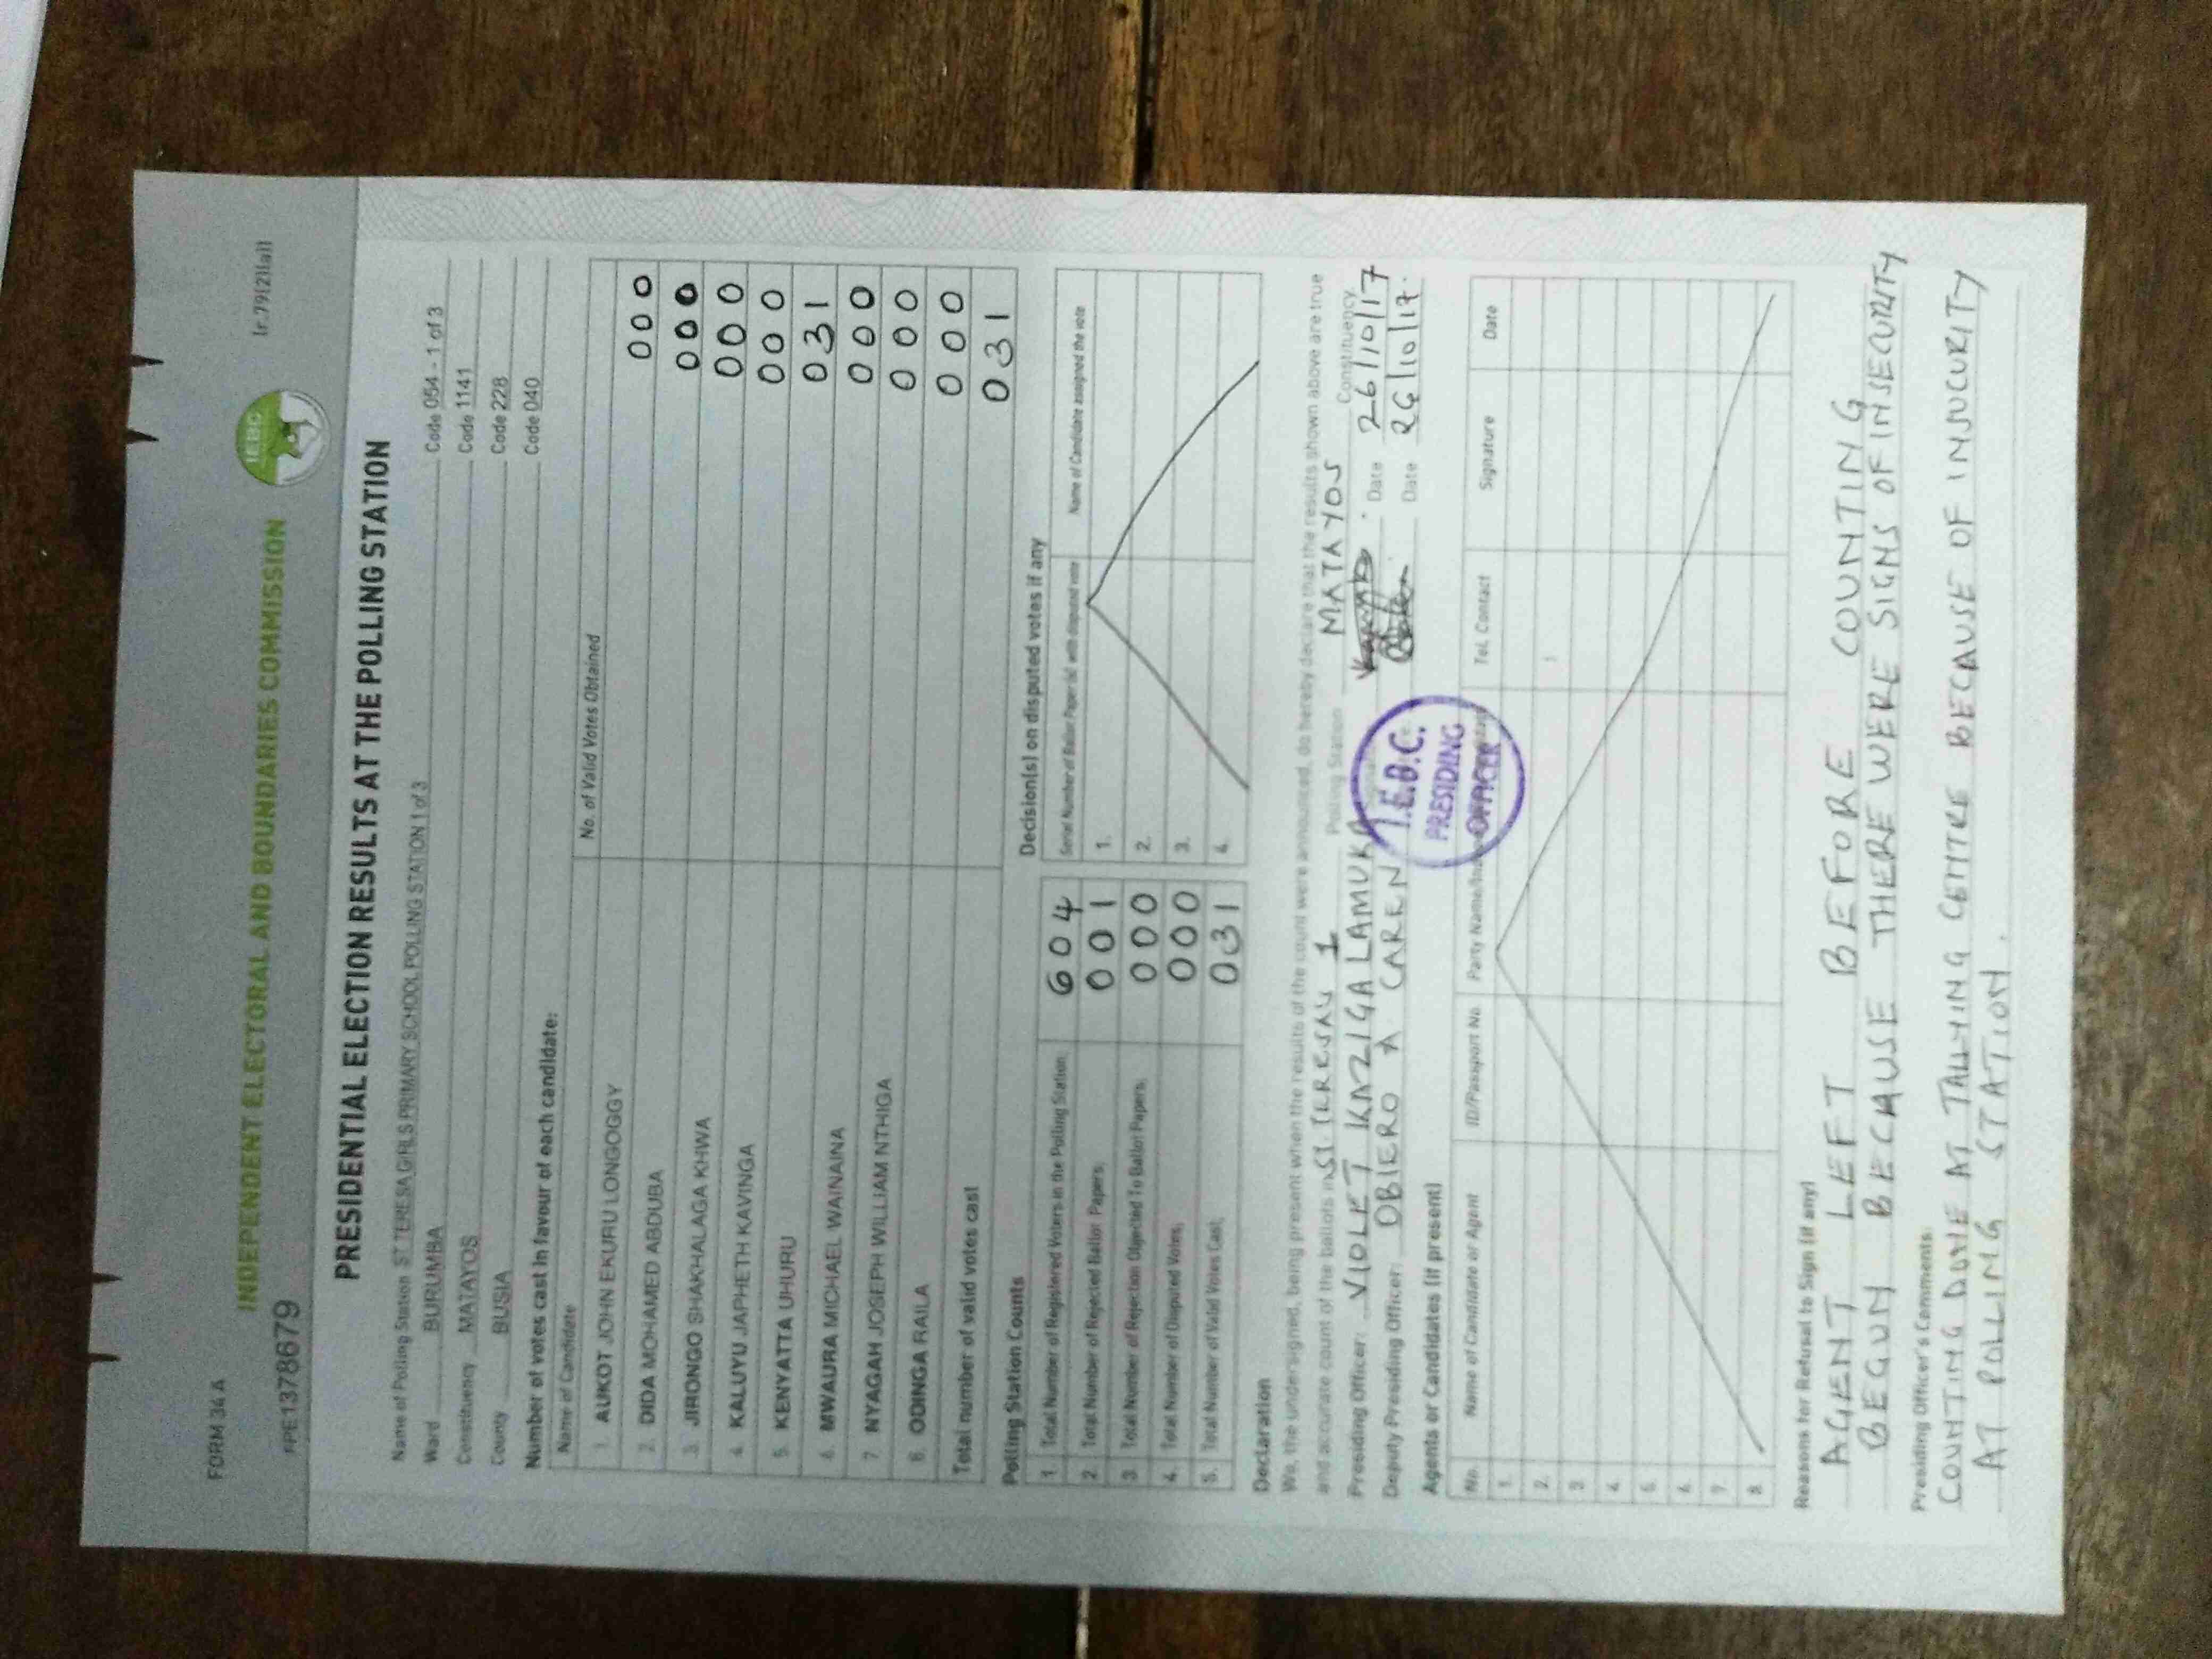 FORM 34 A
(r.79(2)(a))
IEBC
INDEPENDENT ELECTORAL AND BOUNDARIES COMMISSION
#PE1378679
PRESIDENTIAL ELECTION RESULTS AT THE POLLING STATION
Name of Polling Station ST TERESA GIRLS PRIMARY SCHOOL POLLING STATION 1 of 3 Code 054 - 1 of 3
Ward BURUMBA Code 1141
Constituency MATAYOS Code 228
County BUSIA Code 040
Number of votes cast in favour of each candidate:
Name of Candidate No. of Valid Votes Obtained
1. AUKOT JOHN EKURU LONGOGGY 000
2. DIDA MOHAMED ABDUBA 000
3. JIRONGO SHAKHALAGA KHWA 000
4. KALUYU JAPHETH KAVINGA 000
5. KENYATTA UHURU 031
6. MWAURA MICHAEL WAINAINA 000
7. NYAGAH JOSEPH WILLIAM NTHIGA 000
8. ODINGA RAILA 000
Total number of valid votes cast 031
Polling Station Counts
1. Total Number of Registered Voters in the Polling Station 604
2. Total Number of Rejected Ballot Papers. 001
3. Total Number of Rejection Objected To Ballot Papers. 000
4. Total Number of Disputed Votes. 000
5. Total Number of Valid Votes Cast. 031
Decision(s) on disputed votes if any
Serial Number of Ballot Paper (s) with disputed vote Name of Candidate assigned the vote
1.
2.
3.
4.
Declaration
We, the undersigned, being present when the results of the count were announced, do hereby declare that the results shown above are true
and accurate count of the ballots in ST TERESA 1 Polling Station MATAYOS Constituency
Presiding Officer: VIOLET KAZIGA LAMUKA Date 26/10/17
Deputy Presiding Officer: OBIERO A CAREN Date 26/10/17.
I.E.B.C.
PRESIDING
OFFICER
Agents or Candidates (if present)
No. Name of Candidate or Agent ID/Passport No. Party Name/ Tel. Contact Signature Date
1.
2.
3.
4.
5.
6.
7.
8.
Reasons for Refusal to Sign (if any)
AGENT LEFT BEFORE COUNTING
BEGUN BECAUSE THERE WERE SIGNS OF INSECURITY
Presiding Officer's Comments:
COUNTING DONE AT TALLYING CENTRE BECAUSE OF INJUCURITY
AT POLLING STATION.